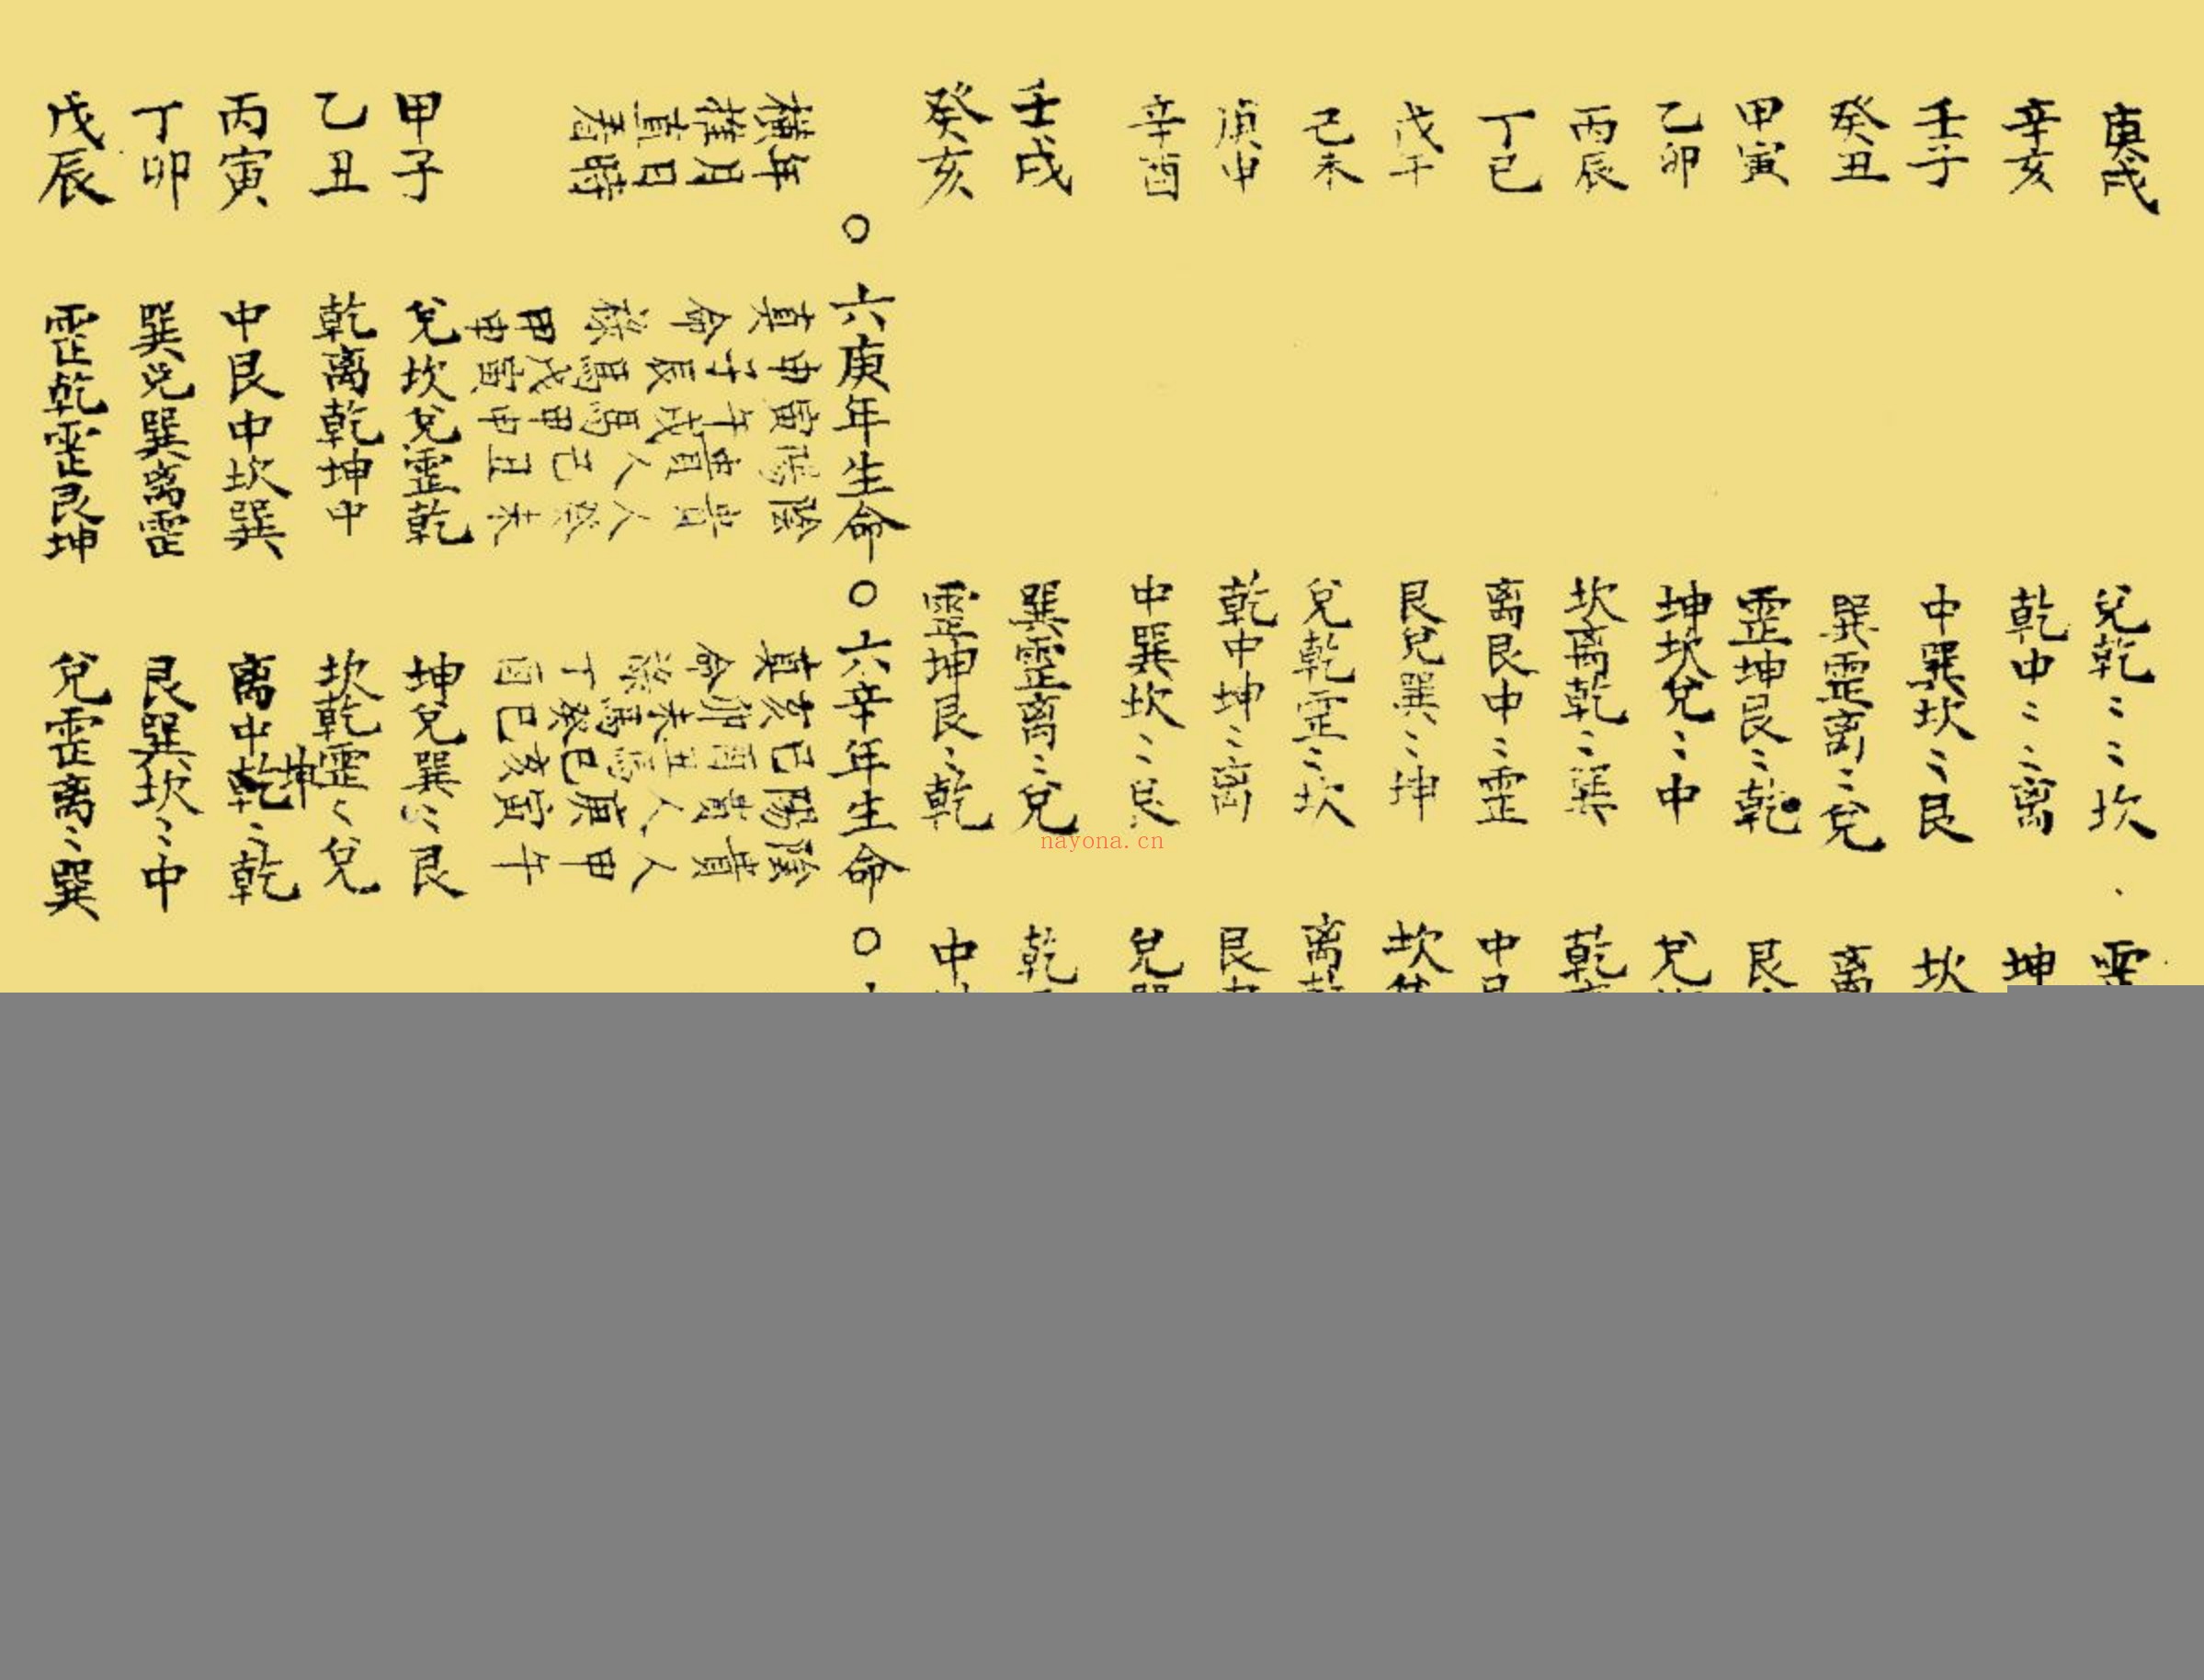 庚戌 兌乾〻〻坎 霊
辛亥 乾中〻〻离 坤
壬子 中巽坎〻艮 坎
癸丑 巽霊离〻兌 离
甲寅 霊坤艮〻乾 艮
乙卯 坤坎兌〻中 兌
丙辰 坎离乾〻巽 乾
丁巳 离艮中〻霊 中
戊午 艮兌巽〻坤 坎
己未 兌乾霊〻坎 离
庚申 乾中坤〻离 艮
辛酉 中巽坎〻艮 兌
壬戌 巽霊离〻兌 乾
癸亥 霊坤艮〻乾 中
○六庚年生命○六辛年生命○
橫年 真申寅陽陰 真亥巳陽陰
推月 命子午貴貴 命卯酉貴貴
直日 辰戌人人 未丑人人
看時 祿馬馬 祿馬馬
甲戊甲己癸 丁癸巳庚甲
申寅申丑未 酉巳亥寅午
甲子 兌坎兌霊乾 坤兌巽〻艮
乙丑 乾离乾坤中 坎乾霊〻兌
坤
丙寅 中艮中坎巽 离中乾〻乾
丁卯 巽兌巽离霊 艮巽坎〻中
戊辰 霊乾霊艮坤 兌霊离〻巽
nayona.cn